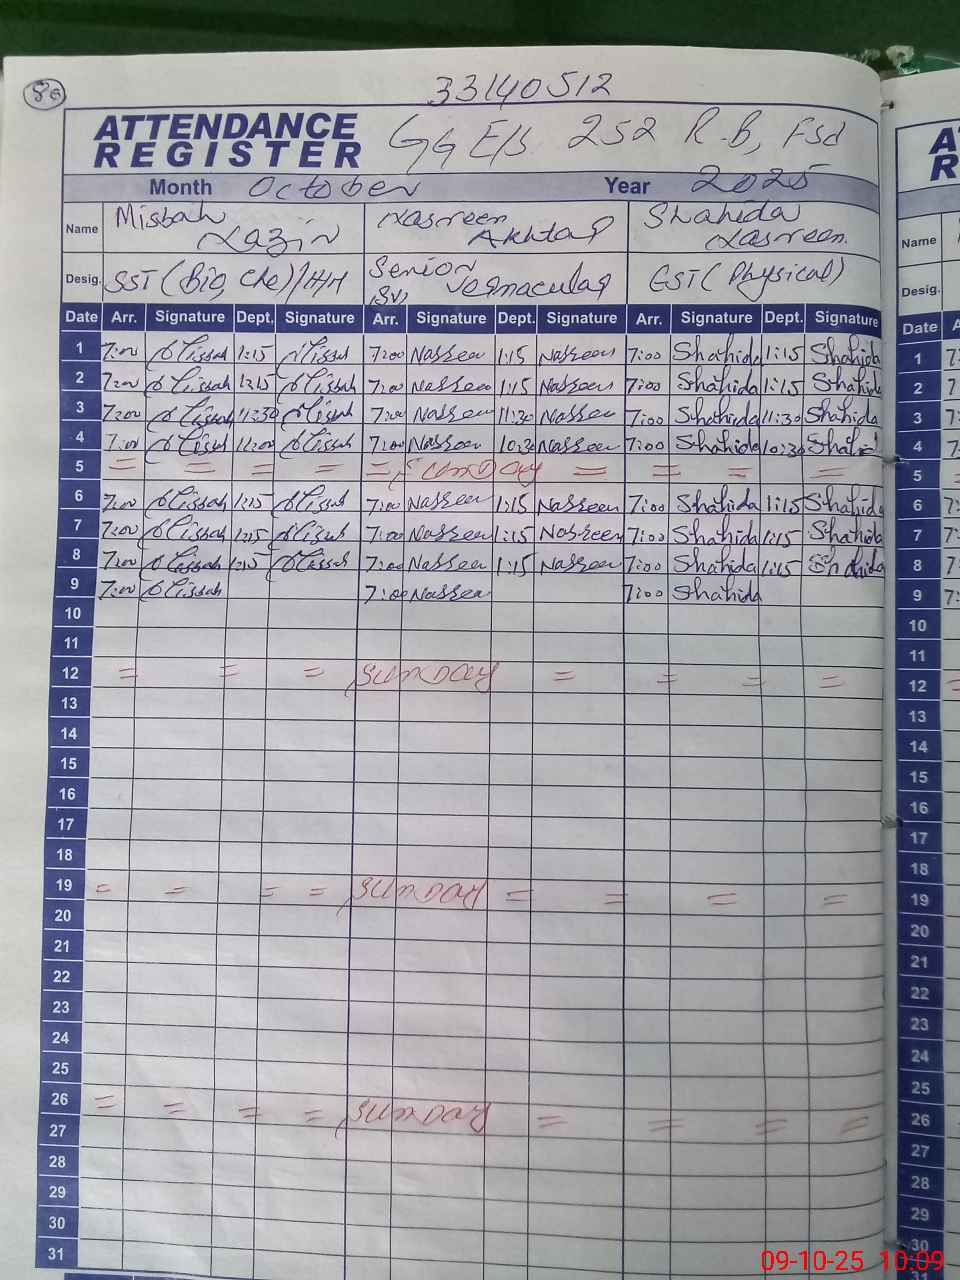 86
33140512
ATTENDANCE REGISTER
GGE/S 252 R.B, Fsd
Month October Year 2025
Name Misbah Nazir Nasreen Akhtar Shahida Nasreen.
Desig. SST (Bio, Che)/H/H Senior Vernacular (SV) EST (Physical)
Date Arr. Signature Dept. Signature Arr. Signature Dept. Signature Arr. Signature Dept. Signature
1 7:00 Misbah 1:15 Misbah 7:00 Nasreen 1:15 Nasreen 7:00 Shahida 1:15 Shahida
2 7:00 Misbah 1:15 Misbah 7:00 Nasreen 1:15 Nasreen 7:00 Shahida 1:15 Shahida
3 7:00 Misbah 11:30 Misbah 7:00 Nasreen 11:30 Nasreen 7:00 Shahida 11:30 Shahida
4 7:00 Misbah 11:00 Misbah 7:00 Nasreen 10:30 Nasreen 7:00 Shahida 10:30 Shahida
5 = = = = = Sunday = = = =
6 7:00 Misbah 1:15 Misbah 7:00 Nasreen 1:15 Nasreen 7:00 Shahida 1:15 Shahida
7 7:00 Misbah 1:15 Misbah 7:00 Nasreen 1:15 Nasreen 7:00 Shahida 1:15 Shahida
8 7:00 Misbah 1:15 Misbah 7:00 Nasreen 1:15 Nasreen 7:00 Shahida 1:15 Shahida
9 7:00 Misbah 7:00 Nasreen 7:00 Shahida
10
11
12 = = = Sunday = = = =
13
14
15
16
17
18
19 = = = = Sunday = = = =
20
21
22
23
24
25
26 = = = = Sunday = = = =
27
28
29
30
31
A
R
Name
Desig.
Date A
1 7:
2 7:
3 7:
4 7
5 =
6 7:
7 7:
8 7:
9 7:
10
11
12 =
13
14
15
16
17
18
19
20
21
22
23
24
25
26
27
28
29
30
31
09-10-25 10:09